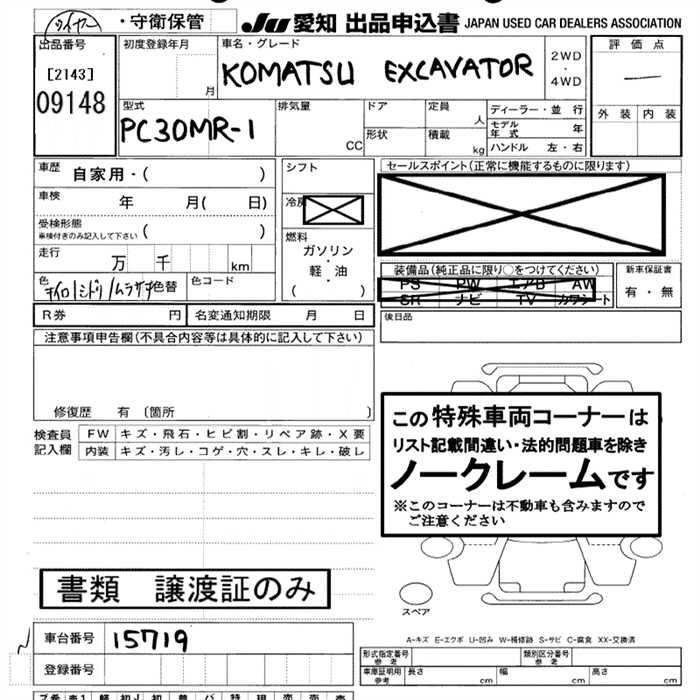 ワイヤー ・守衛保管 Ju 愛知 出品申込書 JAPAN USED CAR DEALERS ASSOCIATION
出品番号
[2143]
09148
初度登録年月
月
車名・グレード
KOMATSU EXCAVATOR
2WD
・
4WD
評価点
—
外装 内装
型式
PC30MR-1
排気量
CC
ドア
形状
定員
人
積載
kg
ディーラー・並行
モデル年式 年
ハンドル 左・右
車歴 自家用・( )
車検 年 月( 日)
受検形態
車検付きのみ記入して下さい ( )
走行 万 千 km
色
色替
色コード
シフト
冷房
燃料
ガソリン
・
軽・油
( )
セールスポイント(正常に機能するものに限ります)
装備品(純正品に限り○をつけてください)
PS PW エアB AW
SR ナビ TV カワシート
新車保証書
有・無
R券 円 名変通知期限 月 日
後日品
注意事項申告欄(不具合内容等は具体的に記入して下さい)
修復歴 有 〔箇所 〕
検査員
記入欄
FW キズ・飛石・ヒビ割・リペア跡・X要
内装 キズ・汚レ・コゲ・穴・スレ・キレ・破レ
この特殊車両コーナーは
リスト記載間違い・法的問題車を除き
ノークレームです
※このコーナーは不動車も含みますので
ご注意ください
書類 譲渡証のみ
スペア
A-キズ E-エクボ U-凹み W-補修跡 S-サビ C-腐食 XX-交換済
車台番号 15719
登録番号
形式指定番号
参考
類別区分番号
参考
車庫証明用
参考
長さ cm 幅 cm 高さ cm